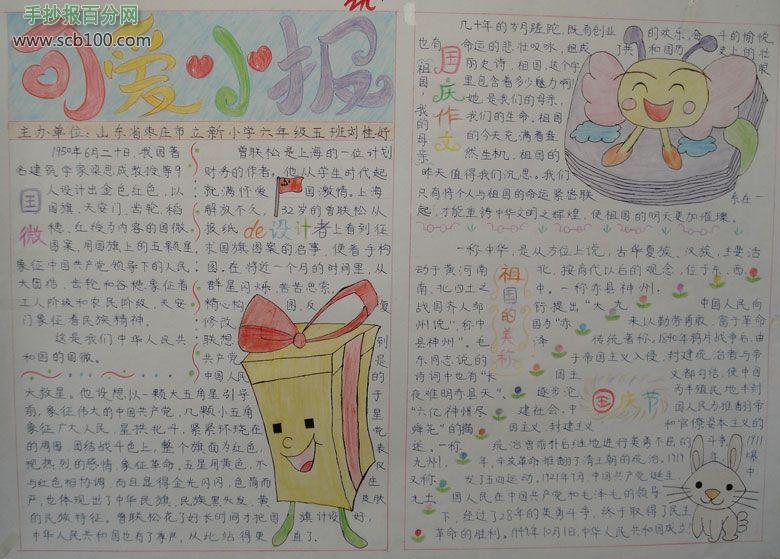 手抄报百分网
www.scb100.com
可爱小报
主办单位:山东省枣庄市立新小学六年级五班刘桂好
国徽
1950年6月二十日,我国著
名建筑学家梁思成教授等9
人设计出金色红色,以
国旗、天安门、齿轮、稻
穗、红绶为内容的国徽
图案,用国旗上的五颗星
象征中国共产党领导下的人民
大团结,齿轮和谷穗象征着
工人阶级和农民阶级,天安
门象征着民族精神。
这是我们中华人民共
和国的国徽。
国旗de设计者
曾联松是上海的一位计划
财务的作者。他从学生时代起
就满怀爱国激情。上海
解放不久,32岁的曾联松从
报纸上看到征
求国旗图案的启事,便着手构
图。在将近一个月的时间里,从
群星闪烁,苦苦思索,
精心构图、反复
修改
联想到
共产党是
中国人民的
大救星。他设想以一颗大五角星引导
前,象征伟大的中国共产党,几颗小五角星
象征广大人民,星拱北斗,紧紧环绕在党
的周围,团结战斗。色上,整个旗面为红色,表
现热烈的感情,象征革命。五星用黄色,不仅
与红色相协调,而且显得金光闪闪,色简而庄
严,也体现出了中华民族,民族黑头发,黄皮肤
的民族特征。曾联松花了好长时间才把国旗计设好,
中华人民共和国也有了尊严,从此站得更直了。
国庆作文
几十年的岁月蹉跎,既有创业的欢乐,奋斗的愉悦
也有命运的悲壮
祖国,我的母亲
丽史诗,祖国,这个字
里包含着多少魅力啊!
她,是我们的母亲,
我们的生命,祖国
的今天充满着盎
然生机,祖国的
昨天值得我们沉思。我们
只有将个人与祖国的命运紧密联系在一
起,才能重铸中华文明之辉煌,使祖国的明天更加璀璨。
祖国的美称
一称中华,是从方位上说,古华夏族、汉族,主要活
动于黄河南北,按商代以后的观念,位于东、西、
南、北四土之中。一称赤县神州,
战国齐人邹衍提出“大九
州说”,称中国为“赤
县神州”。毛泽
东同志说的
诗词中也有“长
夜难明赤县天”、
“六亿神州尽
舜尧”的描
述。一称
九州,
又称
九土
国庆节
中国人民向
来以勤劳勇敢,富于革命
传统著称。1840年鸦片战争后,由
于帝国主义入侵,封建统治者与帝
国主义勾结,使中国
逐步沦为半殖民地半封
建社会,中国人民为推翻帝
国主义,封建主义和官僚资本主义的
统治曾前扑后继地进行英勇不屈的斗争,1911
年,辛亥革命推翻了清王朝的统治,1919年爆
发了五四运动,1921年7月,中国共产党诞生,中
国人民在中国共产党和毛泽毛的领导
下,经过了28年的英勇斗争,终于取得了民主
革命的胜利。1949年10月1日,中华人民共和国成立